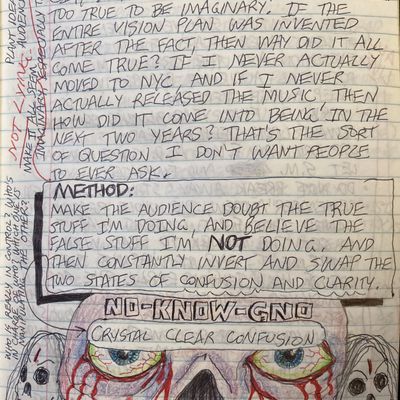 TOO TRUE TO BE IMAGINARY. IF THE
ENTIRE VISION PLAN WAS INVENTED
AFTER THE FACT, THEN WHY DID IT ALL
COME TRUE? IF I NEVER ACTUALLY
MOVED TO NYC, AND IF I NEVER
ACTUALLY RELEASED THE MUSIC, THEN
HOW DID IT COME INTO BEING IN THE
NEXT TWO YEARS? THAT'S THE SORT
OF QUESTION I DON'T WANT PEOPLE
TO EVER ASK.
METHOD:
MAKE THE AUDIENCE DOUBT THE TRUE
STUFF I'M DOING, AND BELIEVE THE
FALSE STUFF I'M NOT DOING. AND
THEN CONSTANTLY INVERT AND SWAP THE
TWO STATES OF CONFUSION AND CLARITY.
NO-KNOW-GNO
CRYSTAL CLEAR CONFUSION
PLANT IDEA
AUDIENCE
NOT LYING.
MAKE IT ALL SEEM
IMAGINARY ESPECIALLY
WHO IS REALLY IN CONTROL? WHO'S
IN CHARGE OF WHO? WHICH ONE IS
THE OTHER?